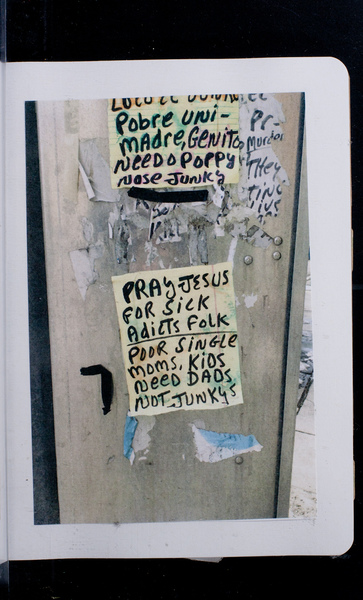 Pobre uni-
madre, Genito
Needo Poppy
Nose-Junky
Pr-
Murdor
They
PRAy-JESUS
FOR SiCK
ADiCTS FOLK
POOR SiNGLE
MOMS, KiDS
NEED DADS,
NOT-JUNKyS